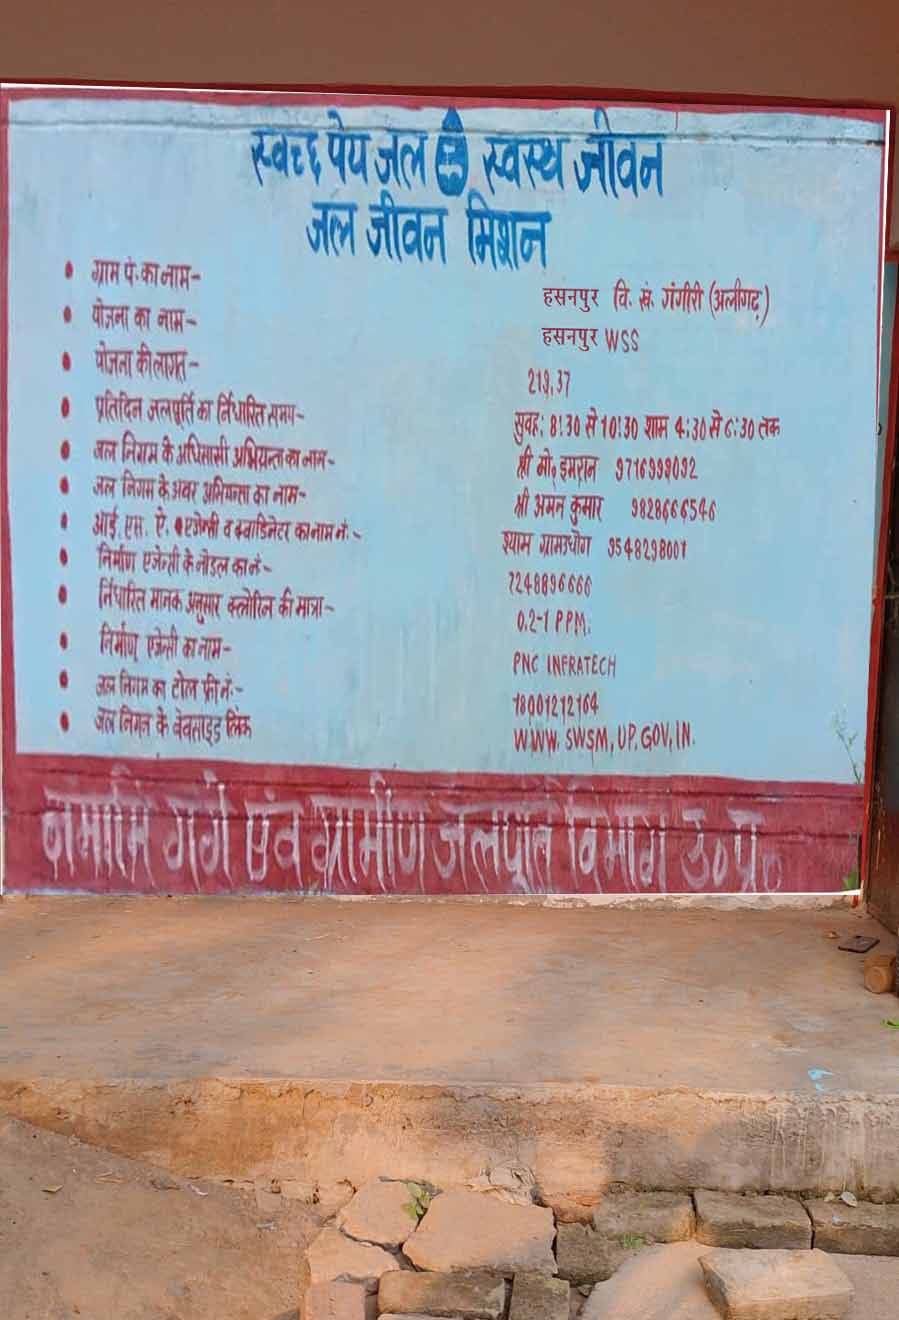 स्वच्छ पेय जल स्वस्थ जीवन
जल जीवन मिशन
ग्राम पं. का नाम- हसनपुर वि. खं. गंगीरी (अलीगढ़)
योजना का नाम- हसनपुर WSS
योजना की लागत- 219.37
प्रतिदिन जलपूर्ति का र्निधारित समय- सुवह: 8:30 से 10:30 शाम 4:30 से 6:30 तक
जल निगम के अधिसासी अभियन्ता का नाम- श्री मो० इमरान 9716999092
जल निगम के अवर अभियन्ता का नाम- श्री अमन कुमार 9828666546
आई. एस. ऐ. एजेन्सी व क्वाडिनेटर का नाम नं:- श्याम ग्रामउधोग 9548298001
निर्माण एजेन्सी के नोडल का नं- 7248896666
र्निधारित मानक अनुसार क्लोरिन की मात्रा- 0.2-1 PPM.
निर्माण एजेन्सी का नाम- PNC INFRATECH
जल निगम का टोल फ्री नं:- 18001212164
जल निगम के वेवसाइड लिंक WWW. SWSM, UP. GOV, IN.
नमामि गंगे एवं ग्रामीण जलपूर्ति विभाग उ०प्र०